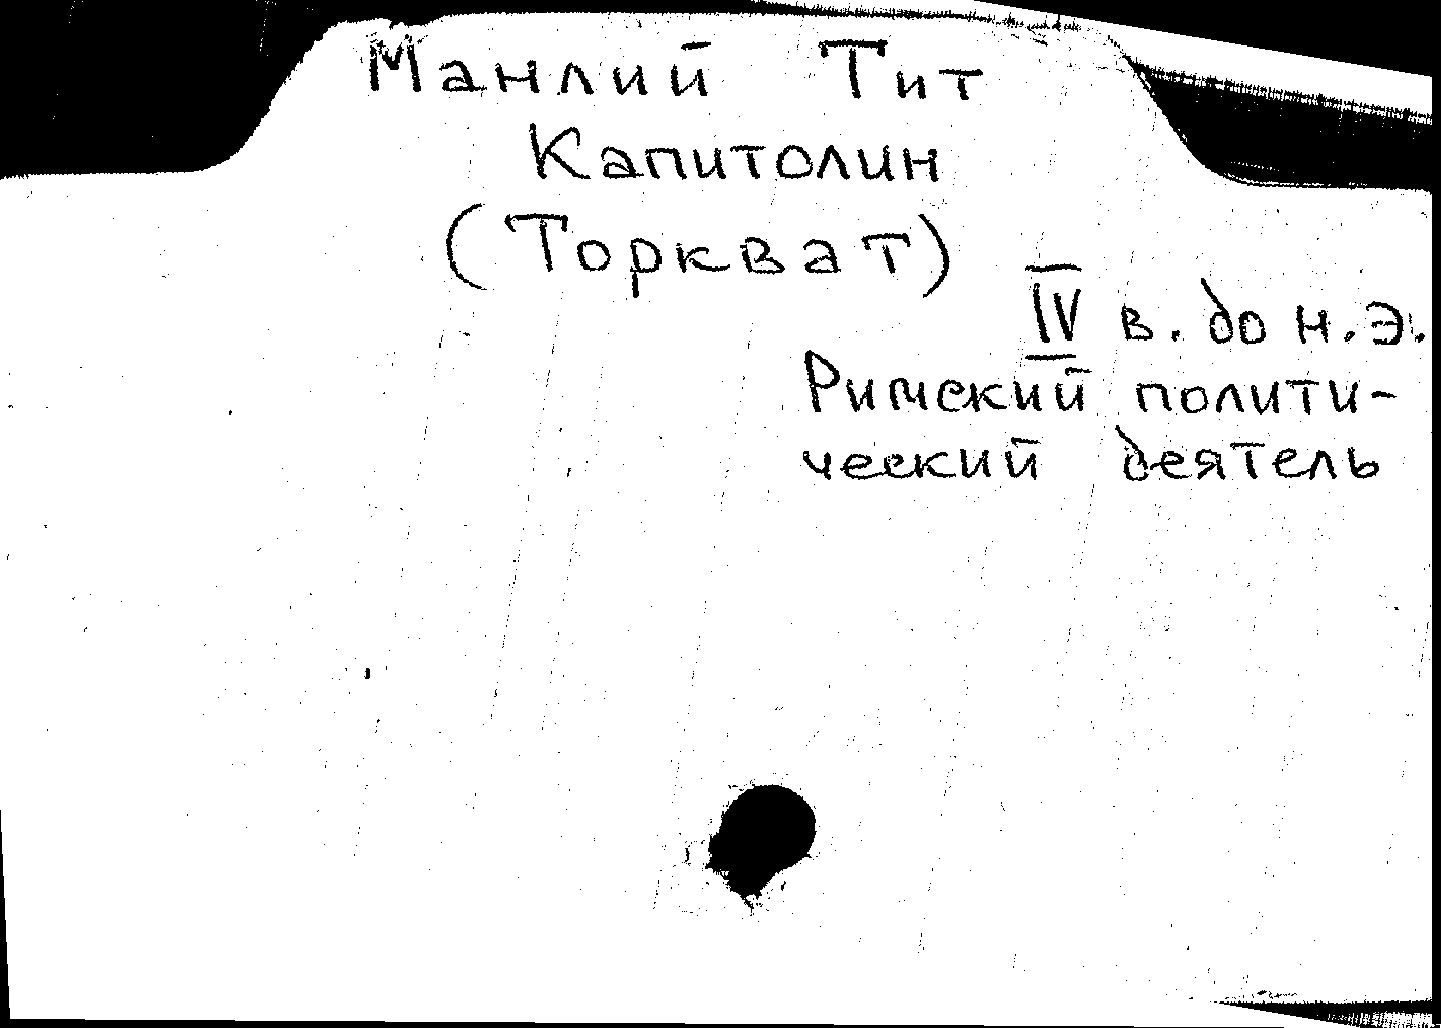 Манлий Тит
Капитолин
(Торкват)
IV в. до н.э.
Римский полити-
ческий деятель